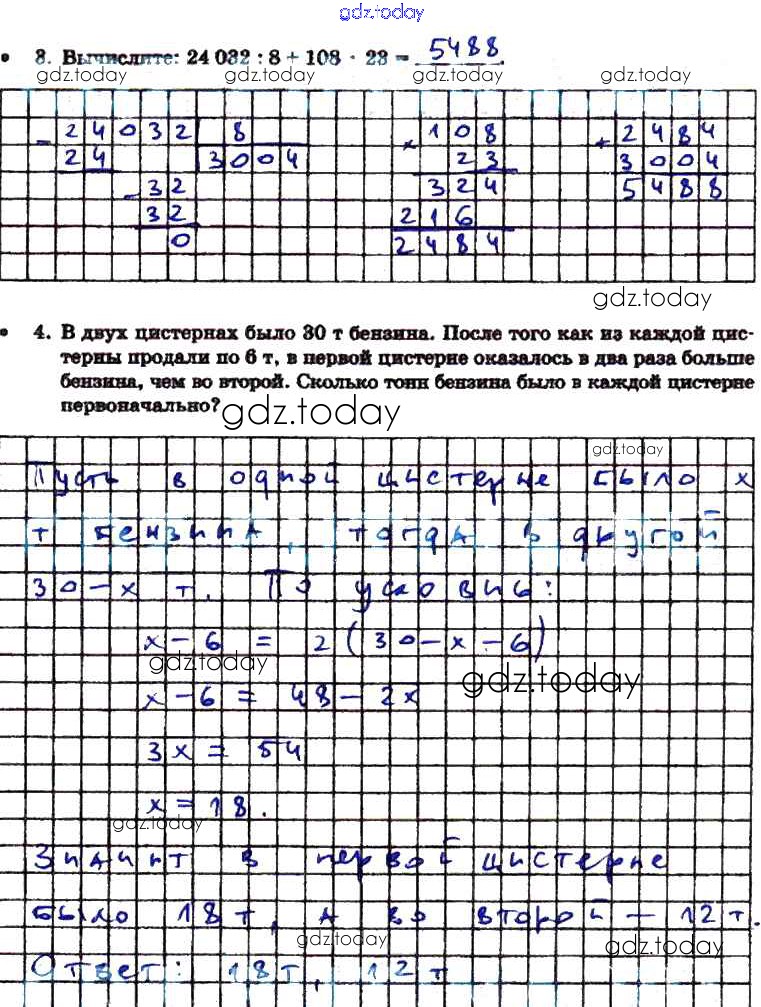 gdz.today
3. Вычислите: 24 032 : 8 + 108 · 23 = 5488.
gdz.today gdz.today gdz.today gdz.today
- 24032 8 × 108 + 2484
24 3004 23 3004
- 32 324 5488
32 216
0 2484
gdz.today
4. В двух цистернах было 30 т бензина. После того как из каждой цис-
терны продали по 6 т, в первой цистерне оказалось в два раза больше
бензина, чем во второй. Сколько тонн бензина было в каждой цистерне
первоначально? gdz.today
gdz.today
Пусть в одной цистерне было x
т бензина, тогда в другой
30-x т. По условию:
x-6 = 2(30-x-6)
gdz.today gdz.today
x-6 = 48-2x
3x = 54
x = 18.
gdz.today
Значит в первой цистерне
было 18 т, а во второй - 12 т.
gdz.today gdz.today
Ответ: 18т, 12 т